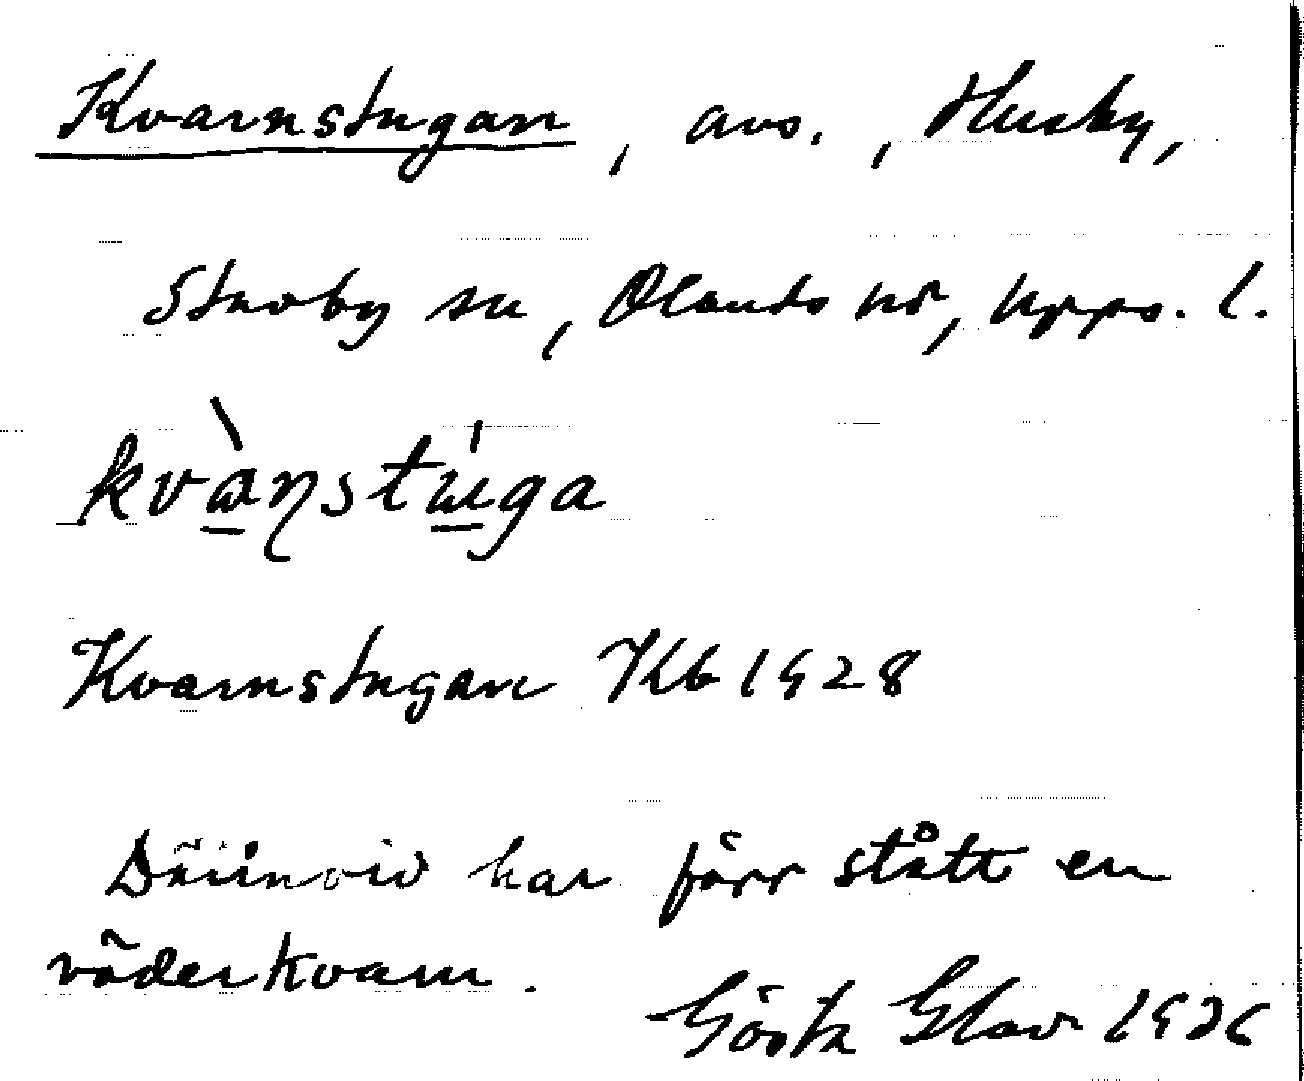 Kvarnstugan, avs., Husby,
Stavby sn, Olands hd, Upps. l.
kvànstúga
Kvarnstugan Kb 1928
Därinvid har förr stått en
väderkvarn.
Gösta Glav 1936